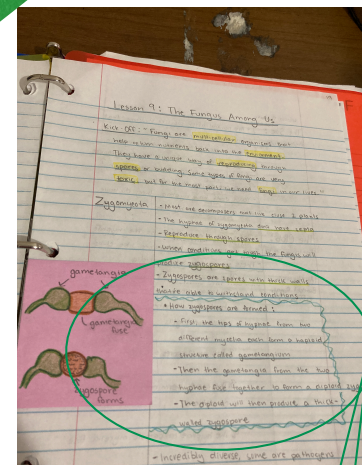 Lesson 9: The Fungus Among Us
Kick-Off: "Fungi are multicellular organisms that
help return nutrients back into the environment.
They have a unique way of reproducing through
spores or budding. Some types of fungi are very
toxic, but for the most part, we need fungi in our lives."
Zygomycota - Most are decomposers that live close to plants
- The hyphae of zygomycota have septa
- Reproduce through spores
- When conditions get rough the fungus will
produce zygospores
- Zygospores are spores with thick walls
that are able to withstand conditions
• How zygospores are formed:
- First, the tips of hyphae from two
different mycelia each form a haploid
structure called gametangium
- Then the gametangia from the two
hyphae fuse together to form a diploid
- The diploid will then produce a thick-
walled zygospore
- Incredibly diverse, some are pathogens
gametangia
gametangia
fuse
zygospore
forms